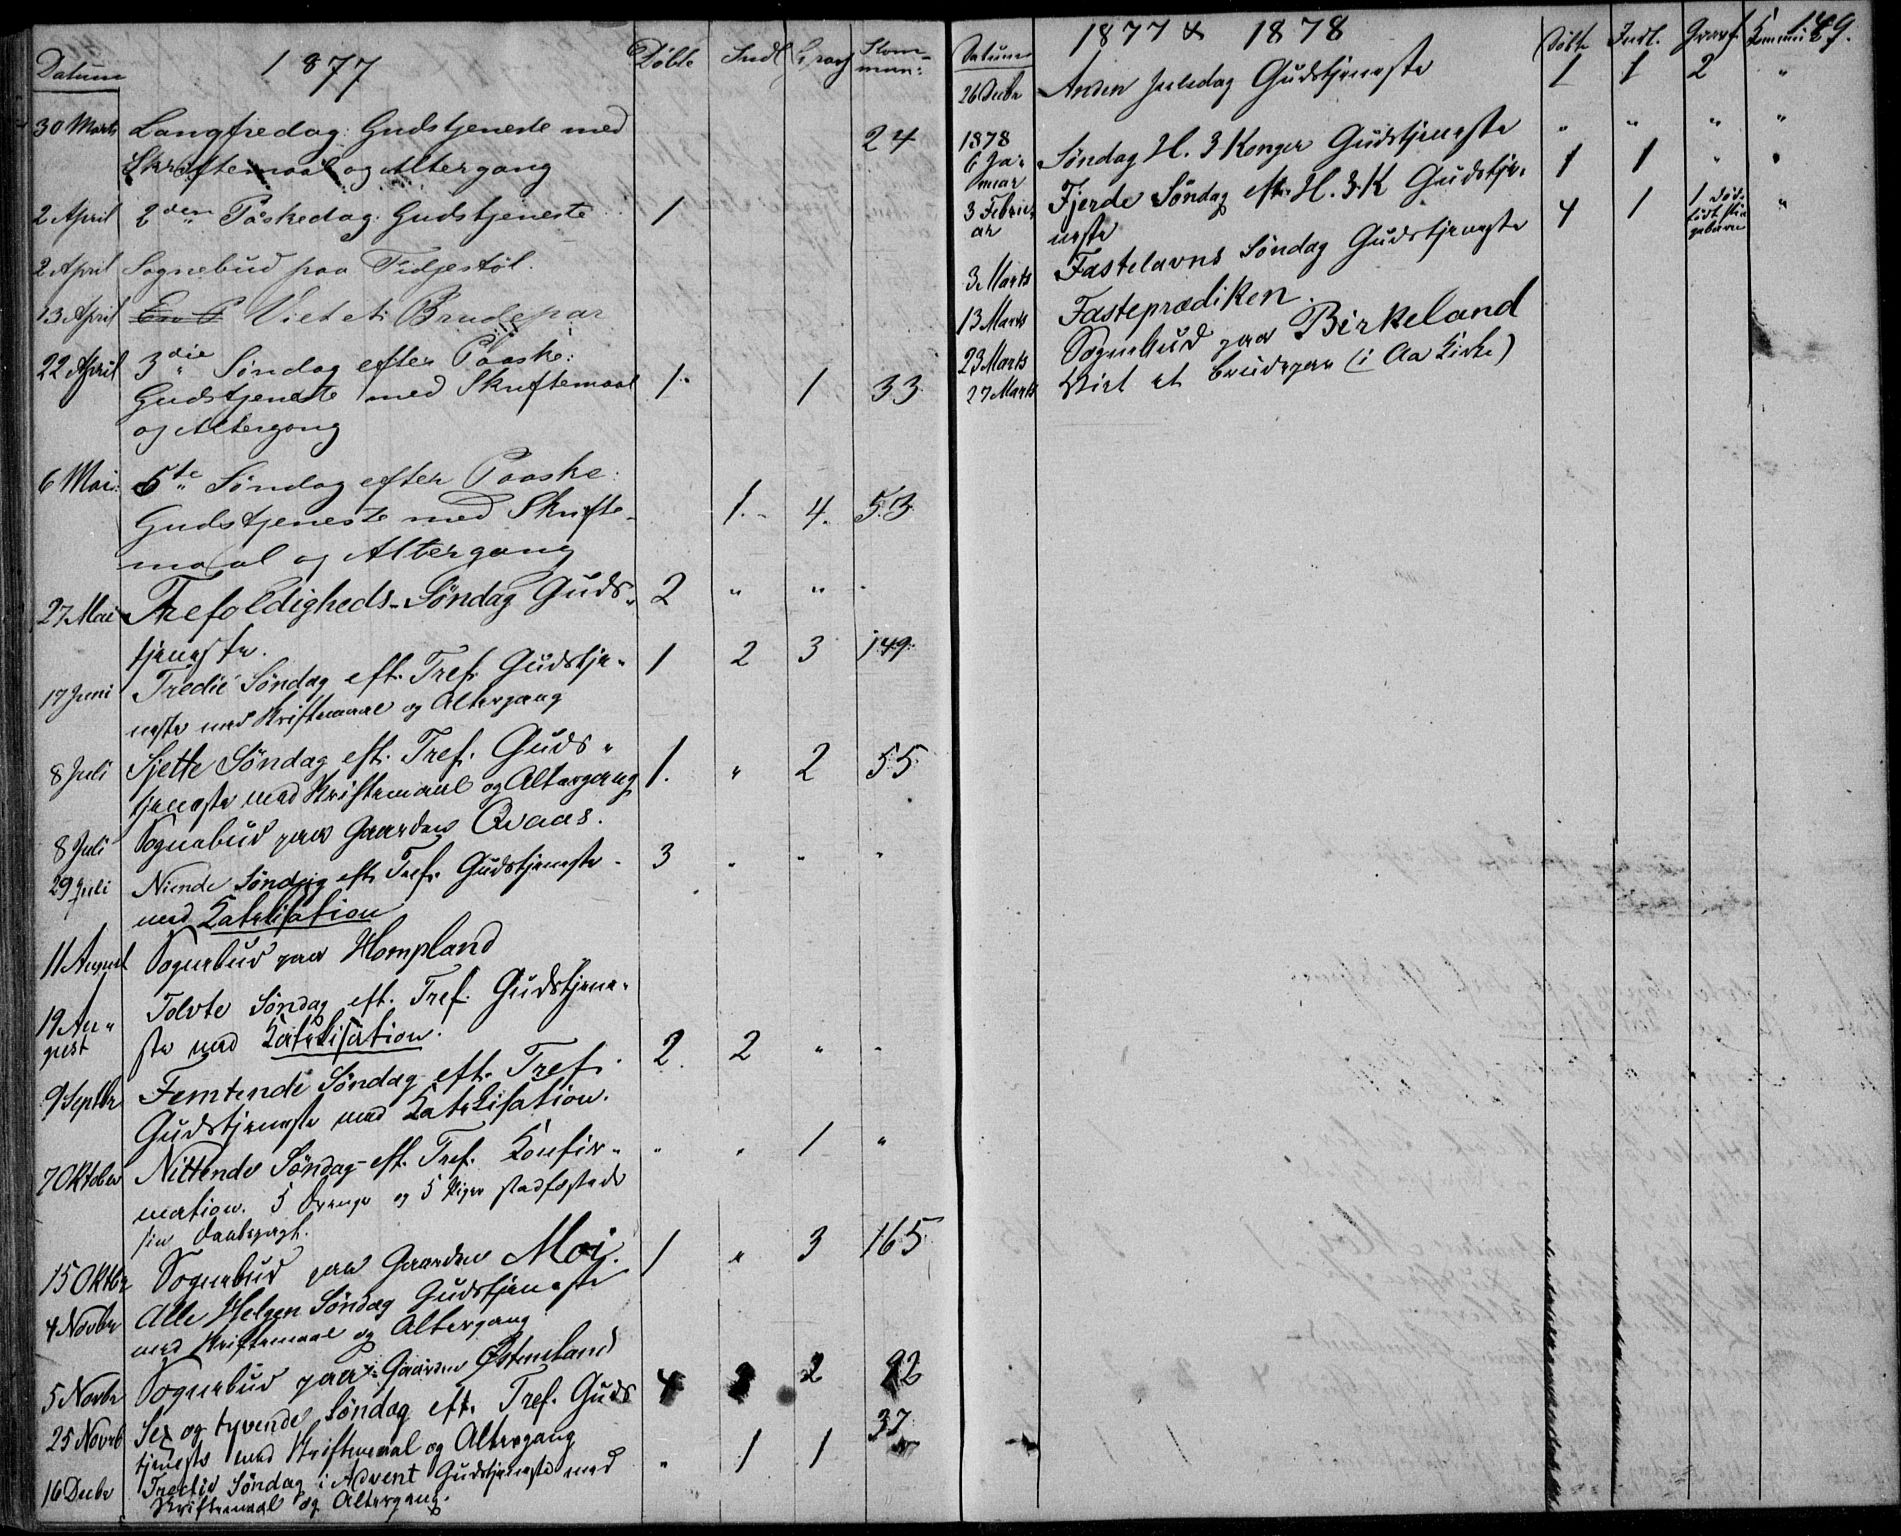 Datum 1877 Døbte Indl. Grav Kom-
mun:
30 Marts Langfredag: Gudstjeneste med
Skriftemaal og Altergang 24
2 April 2den Paaskedag: Gudstjeneste 1
2 April Sognebud paa Tidjestøl.
13 April Viet et Brudepar
22 April 3die Søndag efter Paaske:
Gudstjeneste med Skriftemaal 1. 1 33
og Altergang
6 Mai: 5te Søndag efter Paaske:
Gudstjeneste med Skrifte- 1. 4. 53
maal og Altergang
27 Mai Trefoldigheds-Søndag Guds- 2 " " "
tjeneste.
17 Juni Tredie Søndag eft. Tref. Gudstje- 1 2 3 149
neste med Skriftemaal og Altergang
8 Juli Sjette Søndag eft. Tref. Guds- 1. " 2 55
tjeneste med Skriftemaal og Altergang
8 Juli Sognebud paa Gaarden Qvaas.
29 Juli Niende Søndag eft. Tref. Gudstjeneste 3 " " "
med Katekisation
11 August Sognebud paa Hompland
19 Au-
gust Tolvte Søndag eft. Tref. Gudstjene-
ste med Katekisation. 2 2 " "
9 Septbr Femtende Søndag eft. Tref.
Gudstjeneste med Katekisation.
7 Oktober Nittende Søndag eft. Tref. Konfir- " " 1 "
mation. 5 Drenge og 5 Piger stadfæstede
sin Daabspagt.
15 Oktbr Sognebud paa Gaarden Moi. 1 " 3 165
4 Novbr Alle Helgen Søndag Gudstjeneste
med Skriftemaal og Altergang
5 Novbr Sognebud paa Gaarden
25 Novb Sex og tyvende Søndag eft. Tref. Guds 4 2
tjeneste med Skriftemaal og Altergang 37
16 Decbr Tredie Søndag i Advent Gudstjeneste med " 1 1
Skriftemaal og Altergang.
149.
Datum 1877 & 1878 Døbte Indl. Grav. Kommuni
26 Decbr Anden Juledag Gudstjeneste 1 1 2 "
1878
6 Ja-
nuar Søndag H. 3 Konger Gudstjeneste " " " "
3 Febru-
ar Fjerde Søndag eft. H. 3. K Gudstje- 1 1 " "
neste
3 Marts Fastelavns Søndag Gudstjeneste 4 1 1 død-
"
13 Marts Fasteprædiken.
23 Marts Sognebud paa Birkeland
27 Marts Viet et Brudepar (i Aa Kirke)